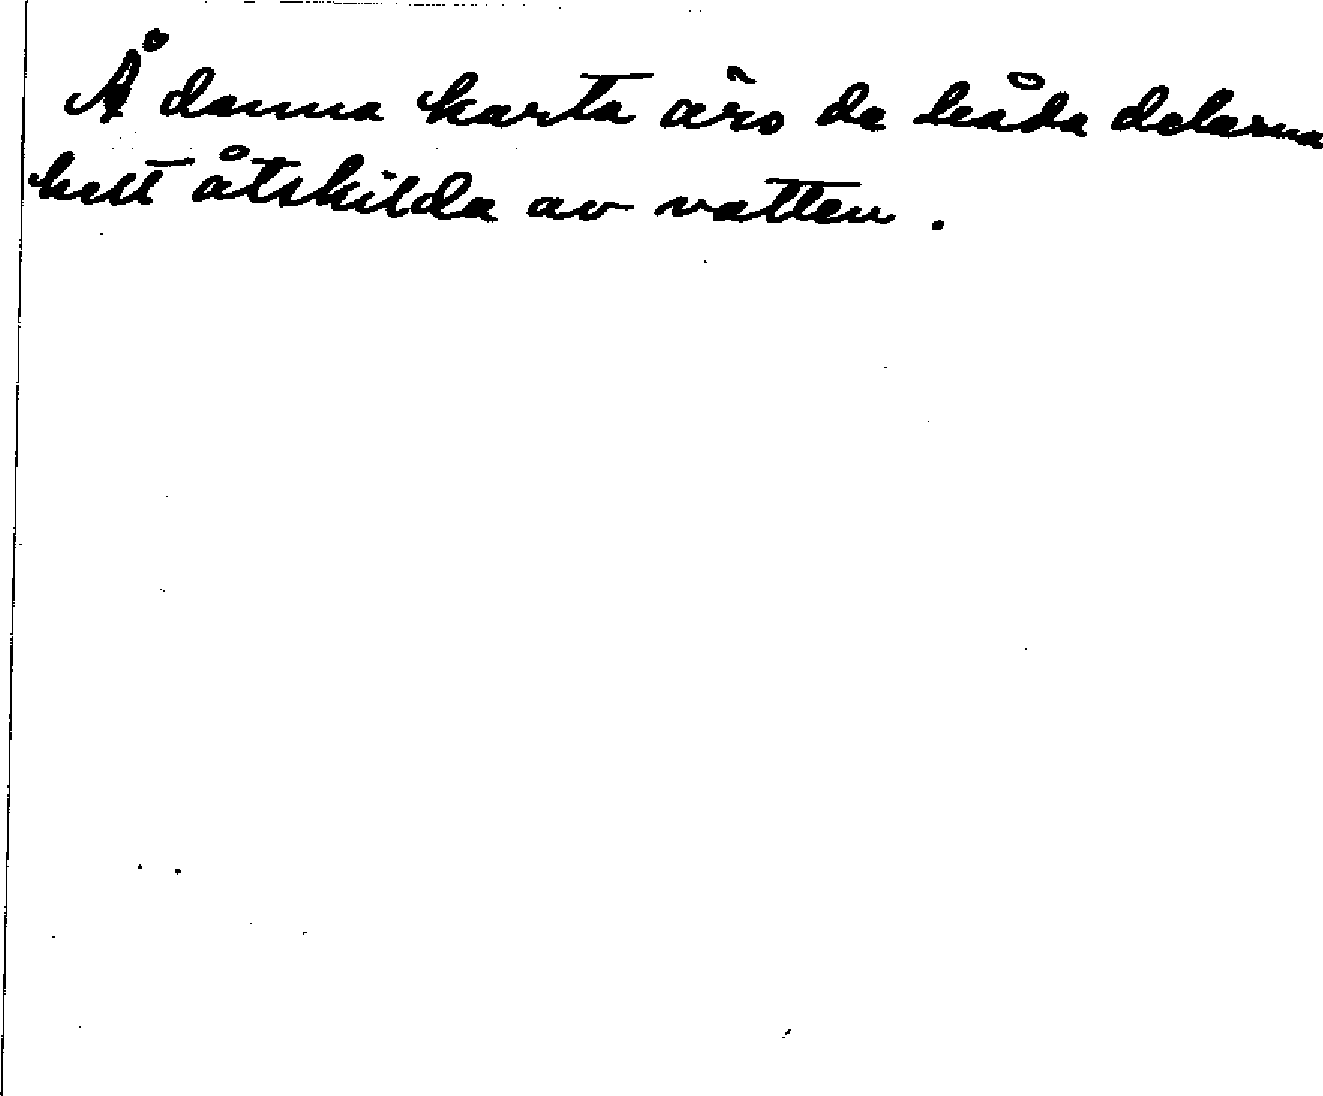 Å denna karta äro de båda delarna
helt åtskilda av vatten.